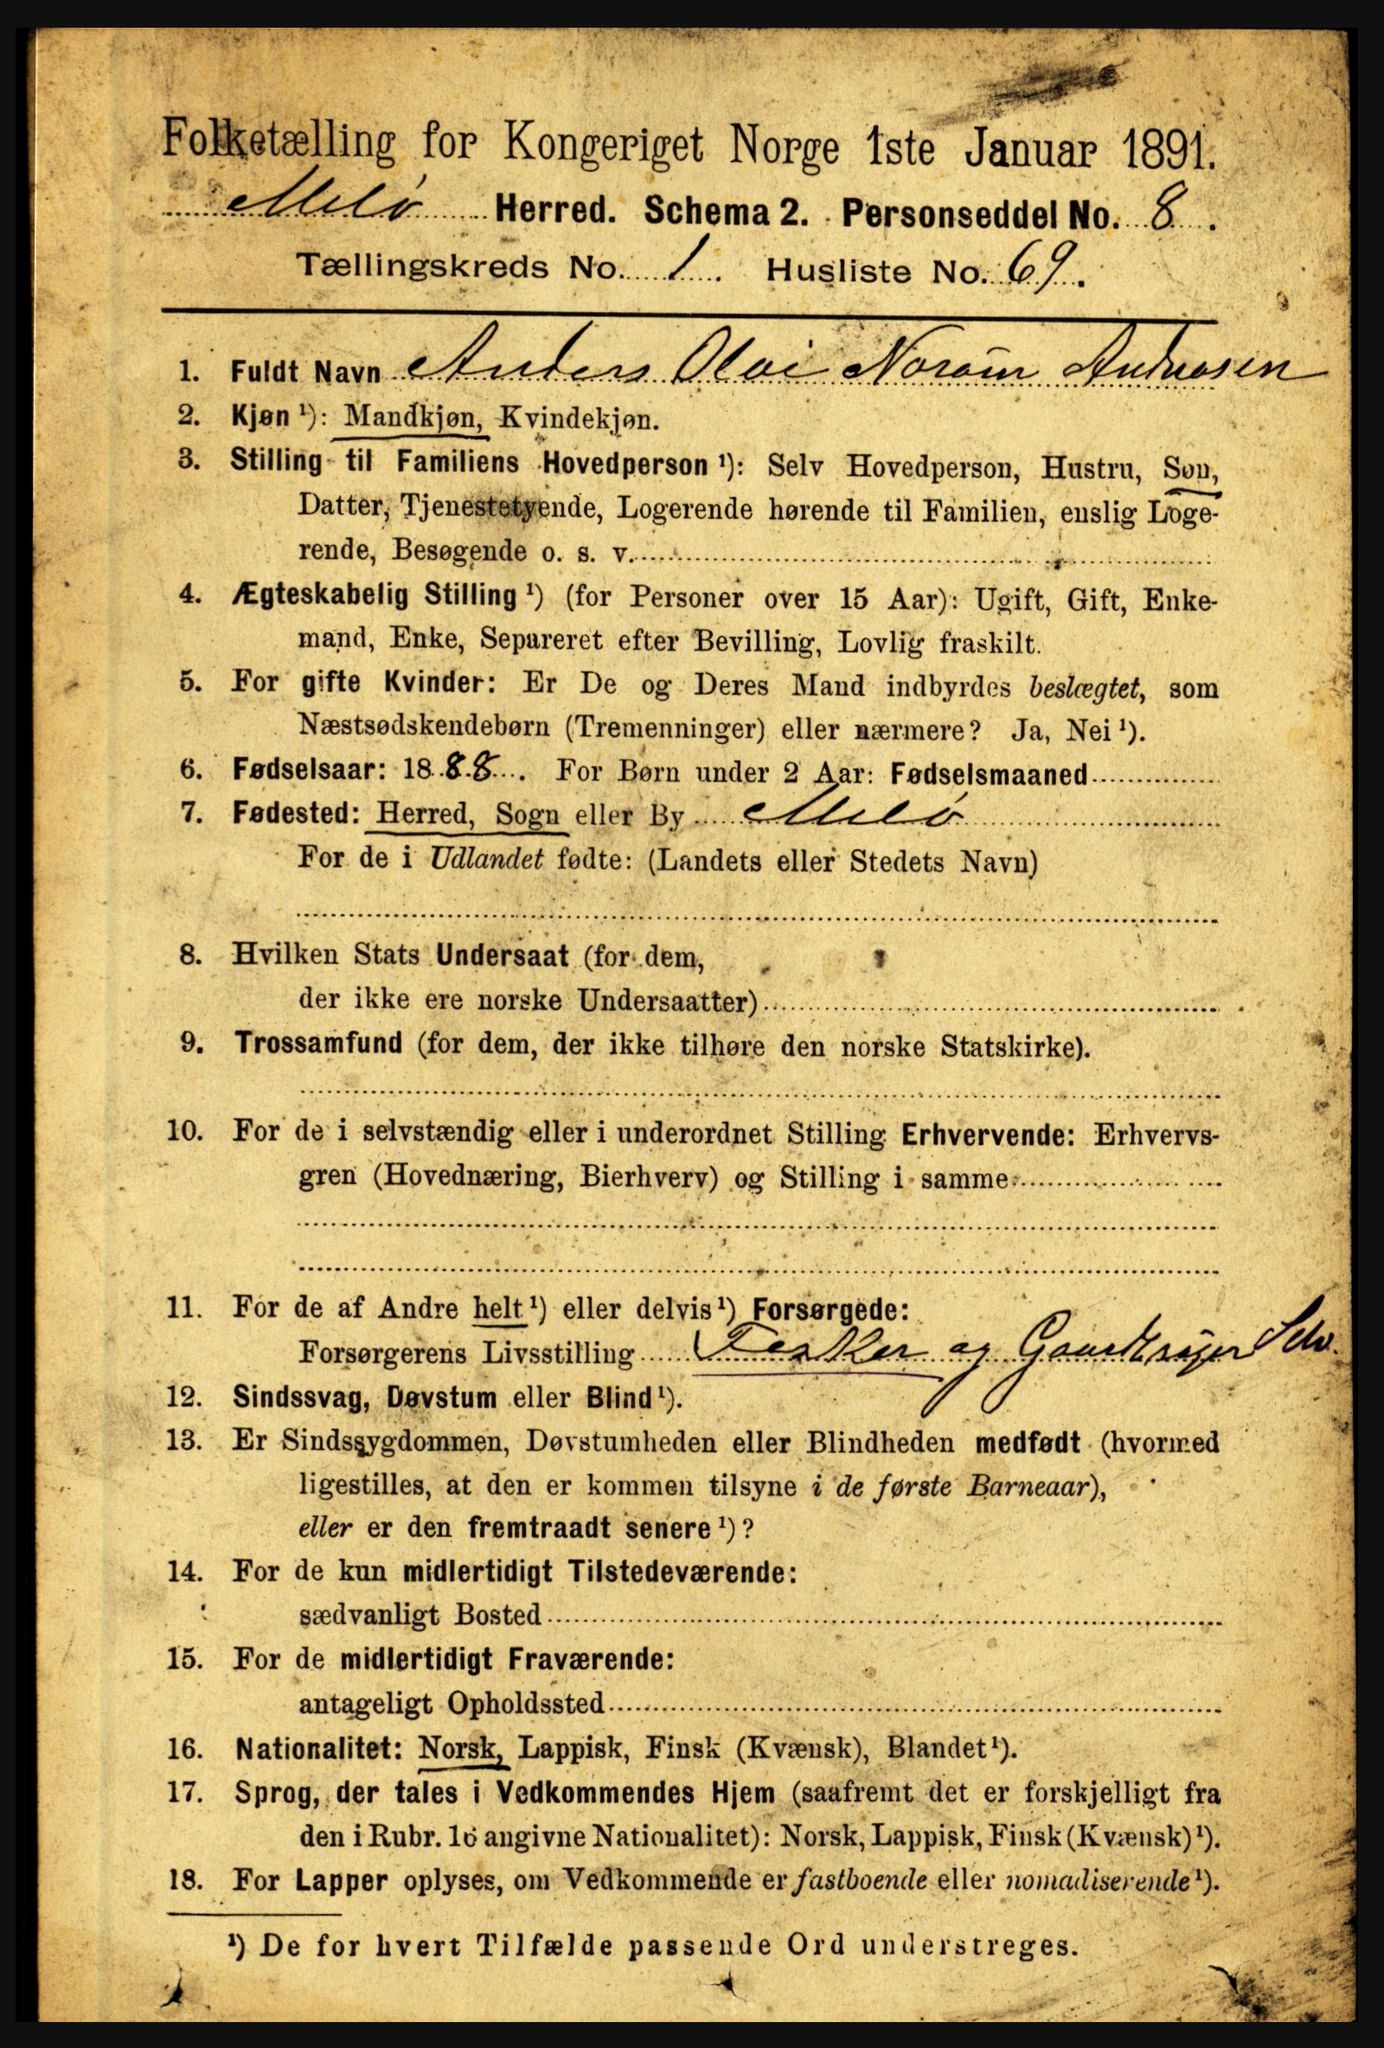 Folketælling for Kongeriget Norge 1ste Januar 1891.
Melø Herred. Schema 2. Personseddel No. 8.
Tællingskreds No. 1. Husliste No. 69.
1. Fuldt Navn Anders Olai Andreasen
2. Kjøn ¹): Mandkjøn, Kvindekjøn.
3. Stilling til Familiens Hovedperson ¹): Selv Hovedperson, Hustru, Søn,
Datter, Tjenestetyende, Logerende hørende til Familien, enslig Loge-
rende, Besøgende o. s. v.
4. Ægteskabelig Stilling ¹) (for Personer over 15 Aar): Ugift, Gift, Enke-
mand, Enke, Separeret efter Bevilling, Lovlig fraskilt.
5. For gifte Kvinder: Er De og Deres Mand indbyrdes beslægtet, som
Næstsødskendebørn (Tremenninger) eller nærmere? Ja, Nei ¹).
6. Fødselsaar: 1888. For Børn under 2 Aar: Fødselsmaaned
7. Fødested: Herred, Sogn eller By Melø
For de i Udlandet fødte: (Landets eller Stedets Navn)
8. Hvilken Stats Undersaat (for dem,
der ikke ere norske Undersaatter)
9. Trossamfund (for dem, der ikke tilhøre den norske Statskirke).
10. For de i selvstændig eller i underordnet Stilling Erhvervende: Erhvervs-
gren (Hovednæring, Bierhverv) og Stilling i samme
11. For de af Andre helt ¹) eller delvis ¹) Forsørgede:
Forsørgerens Livsstilling Fisker og Gaardbruger Selv.
12. Sindssvag, Døvstum eller Blind ¹).
13. Er Sindssygdommen, Døvstumheden eller Blindheden medfødt (hvormed
ligestilles, at den er kommen tilsyne i de første Barneaar),
eller er den fremtraadt senere ¹)?
14. For de kun midlertidigt Tilstedeværende:
sædvanligt Bosted
15. For de midlertidigt Fraværende:
antageligt Opholdssted
16. Nationalitet: Norsk, Lappisk, Finsk (Kvænsk), Blandet ¹).
17. Sprog, der tales i Vedkommendes Hjem (saafremt det er forskjelligt fra
den i Rubr. 16 angivne Nationalitet): Norsk, Lappisk, Finsk (Kvænsk) ¹).
18. For Lapper oplyses, om Vedkommende er fastboende eller nomadiserende ¹).
¹) De for hvert Tilfælde passende Ord understreges.